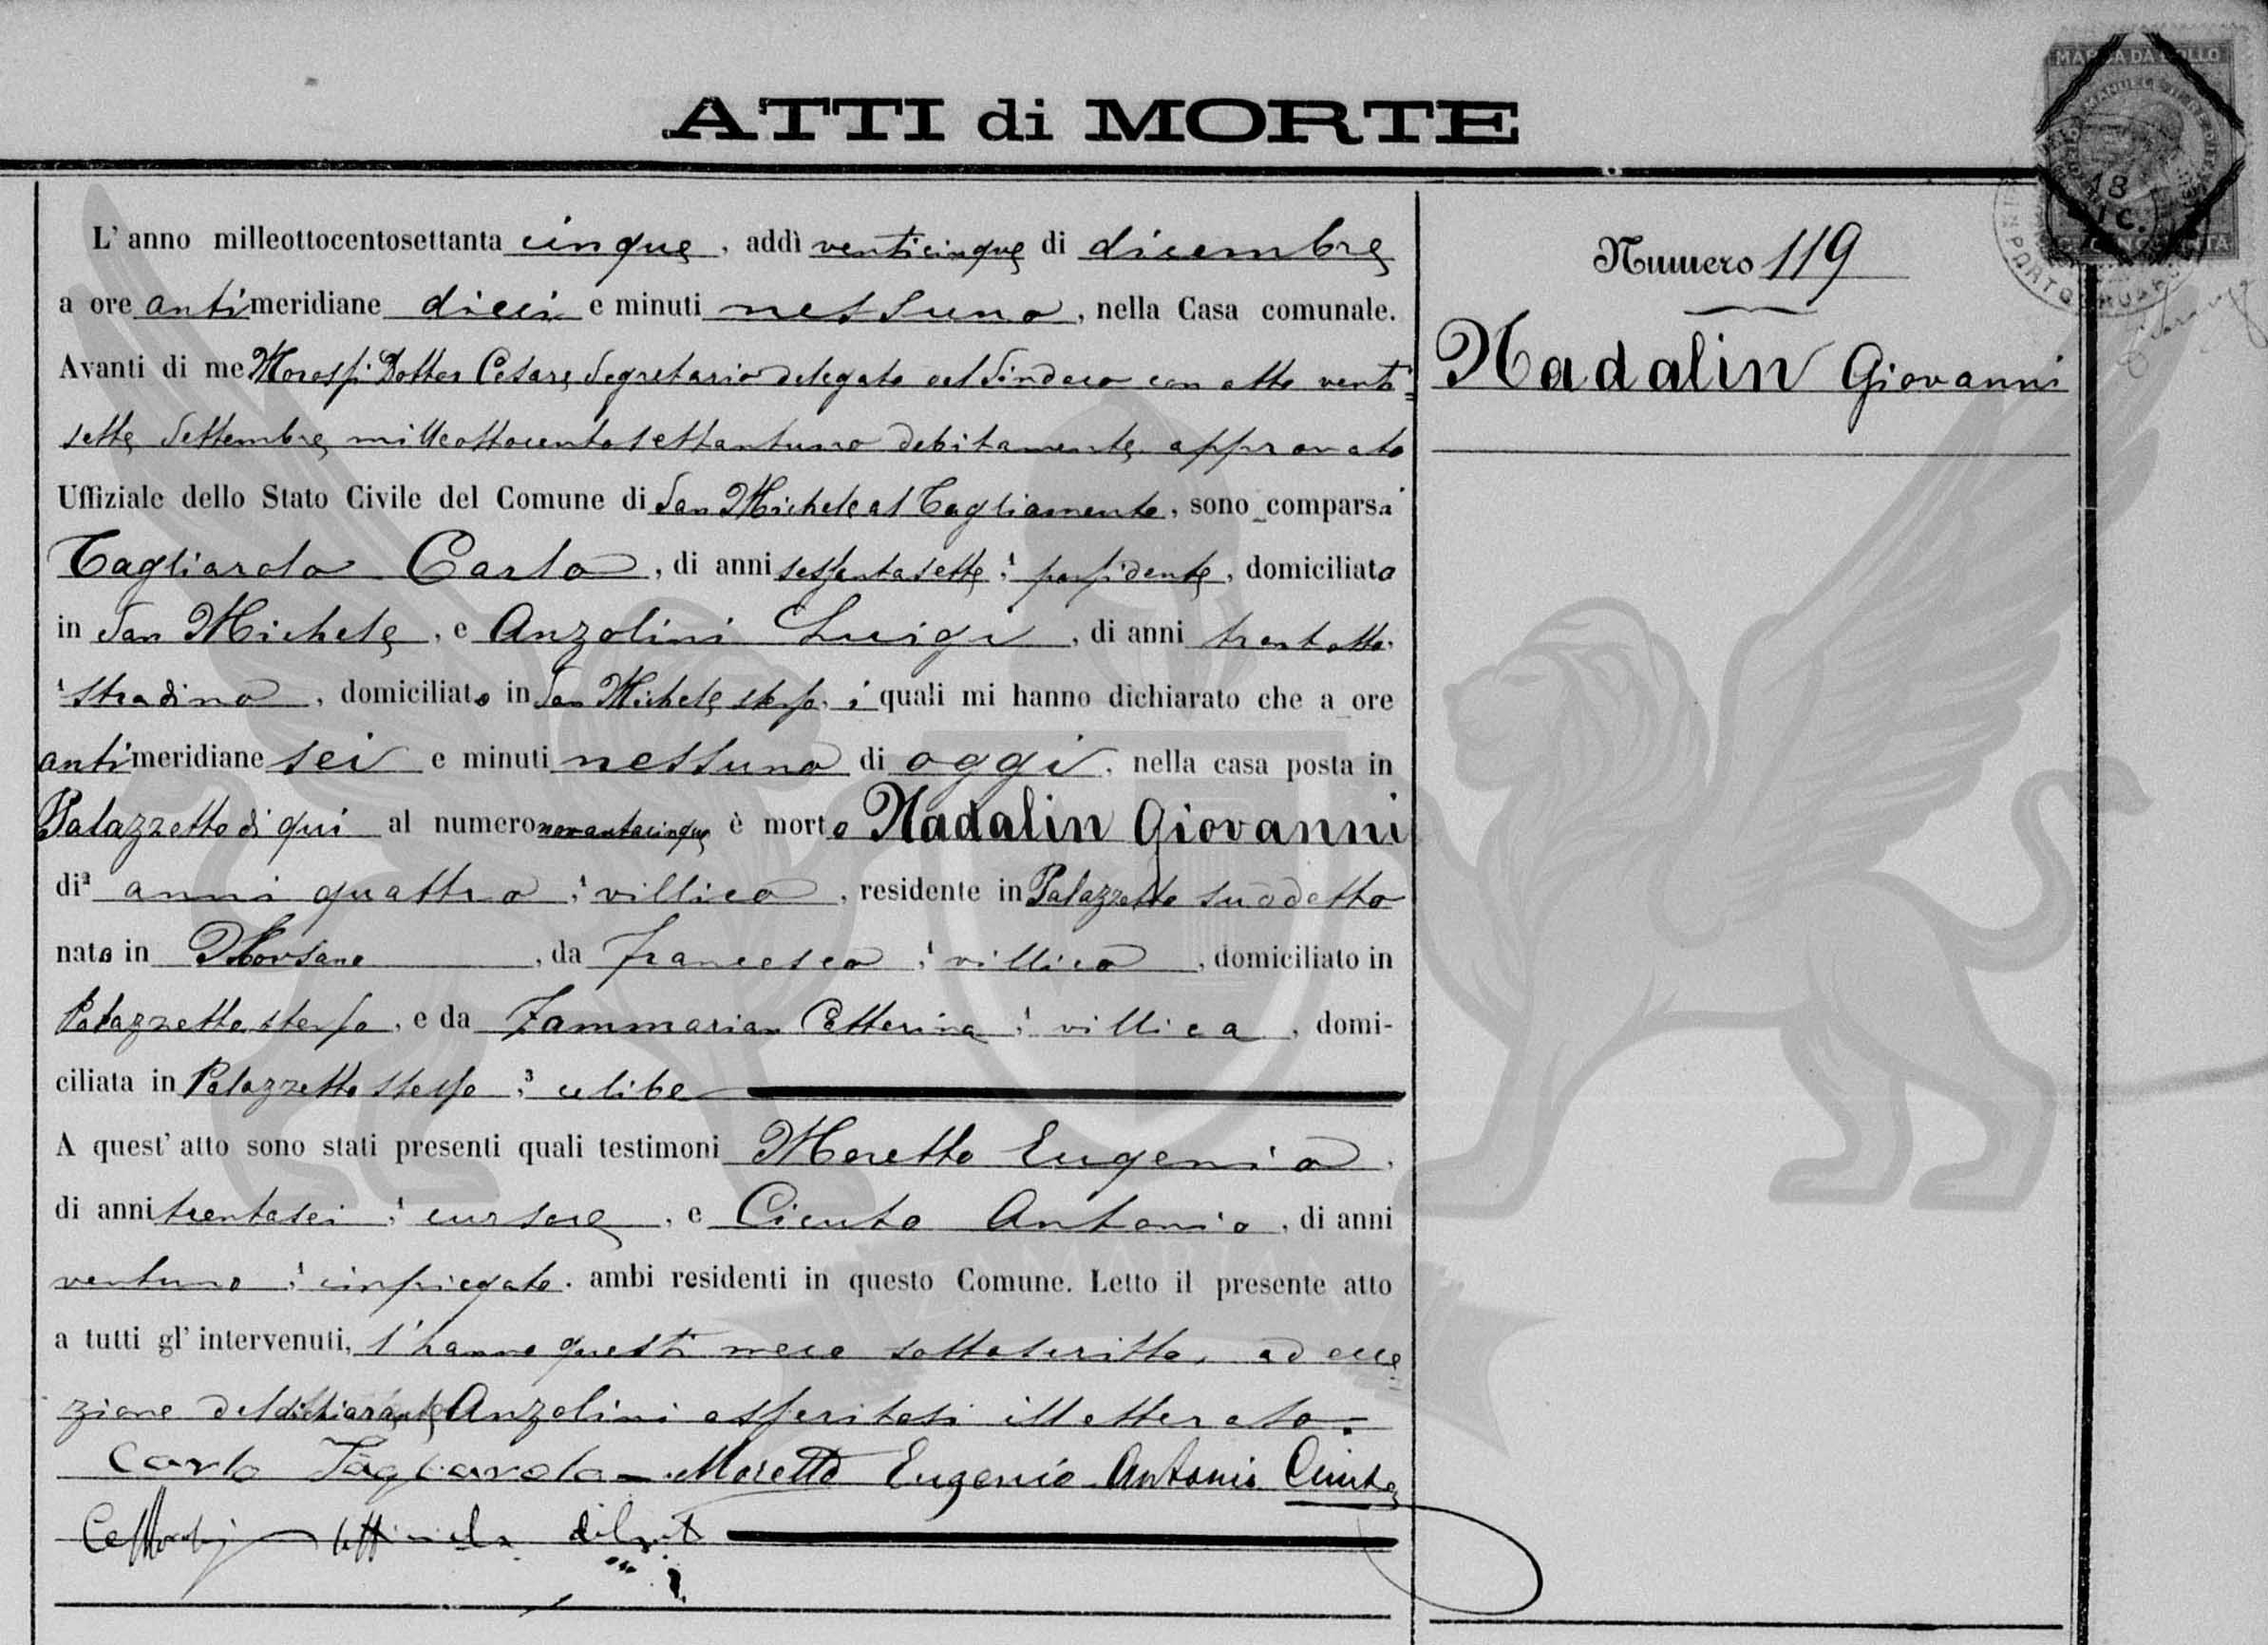 ATTI di MORTE
MARCA DA BOLLO
18
Numero 119
Nadalin Giovanni
L'anno milleottocentosettanta cinque, addì venticinque di dicembre
a ore antimeridiane dieci e minuti nessuno, nella Casa comunale.
Avanti di me Dottor Cesare Segretario delegato dal Sindaco con atto venti=
sette Settembre milleottocentosettantuno debitamente approvato
Uffiziale dello Stato Civile del Comune di San Michele al Tagliamento, sono comparsi
Tagliarolo Carlo, di anni sessantasette, possidente, domiciliato
in San Michele, e Anzolini Luigi, di anni trentotto,
stradino, domiciliato in San Michele stesso, i quali mi hanno dichiarato che a ore
antimeridiane sei e minuti nessuno di oggi, nella casa posta in
Palazzetto di qui al numero novantacinque è morto Nadalin Giovanni
di anni quattro, villico, residente in Palazzetto suddetto
nato in Morsano, da Francesco, villico, domiciliato in
Palazzetto stesso, e da Zammarian Catterina, villica, domi-
ciliata in Palazzetto stesso, celibe
A quest'atto sono stati presenti quali testimoni Moretto Eugenio,
di anni trentasei, cursore, e Ciculo Antonio, di anni
ventuno, impiegato, ambi residenti in questo Comune. Letto il presente atto
a tutti gl'intervenuti, l'hanno questi meco sottoscritto, ad ecce=
zione del dichiarante Anzolini assertosi illetterato.
Carlo Tagliarolo - Moretto Eugenio Antonio